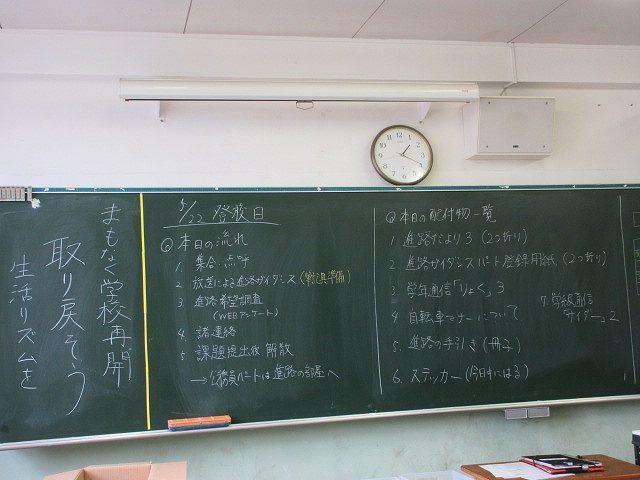 まもなく学校再開
取り戻そう
生活リズムを
5/22 登校日
◎本日の流れ
1. 集合・点呼
2. 放送による進路ガイダンス(筆記具準備)
3. 進路希望調査
(WEBアンケート)
4. 諸連絡
5. 課題提出後 解散
→公務員ルートは進路の部屋へ
◎本日の配付物一覧
1 進路だより3(2つ折り)
2 進路ガイダンスルート登録用紙(2つ折り)
3 学年通信「りょく」3
4 自転車マナーについて
5. 進路の手引き(冊子)
6. ステッカー(今日中にはる)
7. 学級通信
サイダー 2